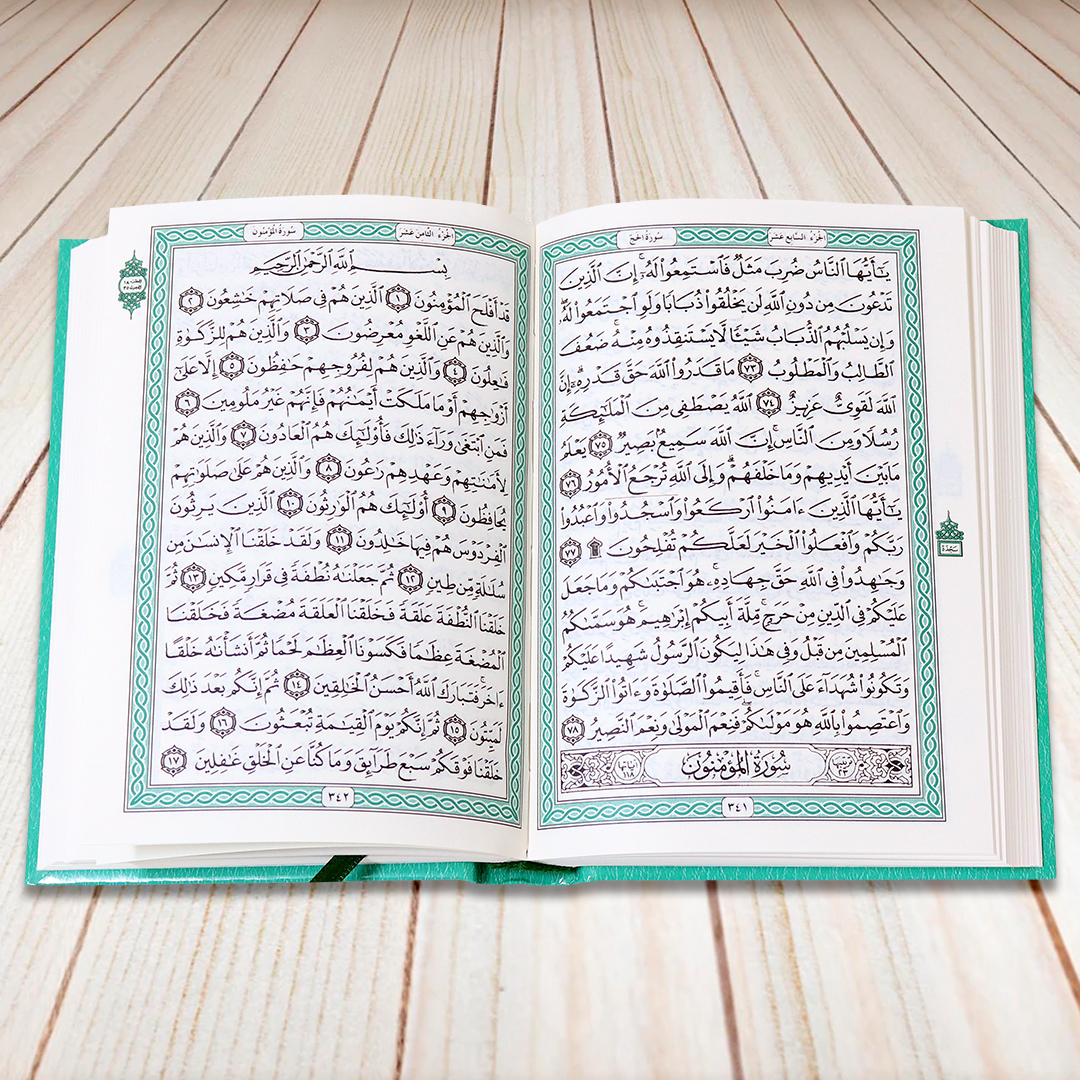 الجزء السابع عشر
سورة الحج
يَـٰٓأَيُّهَا ٱلنَّاسُ ضُرِبَ مَثَلٌ فَٱسْتَمِعُوا۟ لَهُۥٓ ۚ إِنَّ ٱلَّذِينَ
تَدْعُونَ مِن دُونِ ٱللَّهِ لَن يَخْلُقُوا۟ ذُبَابًا وَلَوِ ٱجْتَمَعُوا۟ لَهُۥ ۖ
وَإِن يَسْلُبْهُمُ ٱلذُّبَابُ شَيْـًٔا لَّا يَسْتَنقِذُوهُ مِنْهُ ۚ ضَعُفَ
ٱلطَّالِبُ وَٱلْمَطْلُوبُ ٧٣ مَا قَدَرُوا۟ ٱللَّهَ حَقَّ قَدْرِهِۦٓ ۗ إِنَّ
ٱللَّهَ لَقَوِىٌّ عَزِيزٌ ٧٤ ٱللَّهُ يَصْطَفِى مِنَ ٱلْمَلَـٰٓئِكَةِ
رُسُلًا وَمِنَ ٱلنَّاسِ ۚ إِنَّ ٱللَّهَ سَمِيعٌۢ بَصِيرٌ ٧٥ يَعْلَمُ
مَا بَيْنَ أَيْدِيهِمْ وَمَا خَلْفَهُمْ ۗ وَإِلَى ٱللَّهِ تُرْجَعُ ٱلْأُمُورُ ٧٦
يَـٰٓأَيُّهَا ٱلَّذِينَ ءَامَنُوا۟ ٱرْكَعُوا۟ وَٱسْجُدُوا۟ وَٱعْبُدُوا۟
رَبَّكُمْ وَٱفْعَلُوا۟ ٱلْخَيْرَ لَعَلَّكُمْ تُفْلِحُونَ ۩ ٧٧
وَجَـٰهِدُوا۟ فِى ٱللَّهِ حَقَّ جِهَادِهِۦ ۚ هُوَ ٱجْتَبَىٰكُمْ وَمَا جَعَلَ
عَلَيْكُمْ فِى ٱلدِّينِ مِنْ حَرَجٍ ۚ مِّلَّةَ أَبِيكُمْ إِبْرَٰهِيمَ ۚ هُوَ سَمَّىٰكُمُ
ٱلْمُسْلِمِينَ مِن قَبْلُ وَفِى هَـٰذَا لِيَكُونَ ٱلرَّسُولُ شَهِيدًا عَلَيْكُمْ
وَتَكُونُوا۟ شُهَدَآءَ عَلَى ٱلنَّاسِ ۚ فَأَقِيمُوا۟ ٱلصَّلَوٰةَ وَءَاتُوا۟ ٱلزَّكَوٰةَ
وَٱعْتَصِمُوا۟ بِٱللَّهِ هُوَ مَوْلَىٰكُمْ ۖ فَنِعْمَ ٱلْمَوْلَىٰ وَنِعْمَ ٱلنَّصِيرُ ٧٨
ترتيبها ٢٣ سُورَةُ المُؤْمِنُونَ آياتها ١١٨
٣٤١
سجدة
الجزء الثامن عشر
سورة المؤمنون
بِسْمِ ٱللَّهِ ٱلرَّحْمَـٰنِ ٱلرَّحِيمِ
قَدْ أَفْلَحَ ٱلْمُؤْمِنُونَ ١ ٱلَّذِينَ هُمْ فِى صَلَاتِهِمْ خَـٰشِعُونَ ٢
وَٱلَّذِينَ هُمْ عَنِ ٱللَّغْوِ مُعْرِضُونَ ٣ وَٱلَّذِينَ هُمْ لِلزَّكَوٰةِ
فَـٰعِلُونَ ٤ وَٱلَّذِينَ هُمْ لِفُرُوجِهِمْ حَـٰفِظُونَ ٥ إِلَّا عَلَىٰٓ
أَزْوَٰجِهِمْ أَوْ مَا مَلَكَتْ أَيْمَـٰنُهُمْ فَإِنَّهُمْ غَيْرُ مَلُومِينَ ٦
فَمَنِ ٱبْتَغَىٰ وَرَآءَ ذَٰلِكَ فَأُو۟لَـٰٓئِكَ هُمُ ٱلْعَادُونَ ٧ وَٱلَّذِينَ هُمْ
لِأَمَـٰنَـٰتِهِمْ وَعَهْدِهِمْ رَٰعُونَ ٨ وَٱلَّذِينَ هُمْ عَلَىٰ صَلَوَٰتِهِمْ
يُحَافِظُونَ ٩ أُو۟لَـٰٓئِكَ هُمُ ٱلْوَٰرِثُونَ ١٠ ٱلَّذِينَ يَرِثُونَ
ٱلْفِرْدَوْسَ هُمْ فِيهَا خَـٰلِدُونَ ١١ وَلَقَدْ خَلَقْنَا ٱلْإِنسَـٰنَ مِن
سُلَـٰلَةٍ مِّن طِينٍ ١٢ ثُمَّ جَعَلْنَـٰهُ نُطْفَةً فِى قَرَارٍ مَّكِينٍ ١٣ ثُمَّ
خَلَقْنَا ٱلنُّطْفَةَ عَلَقَةً فَخَلَقْنَا ٱلْعَلَقَةَ مُضْغَةً فَخَلَقْنَا
ٱلْمُضْغَةَ عِظَـٰمًا فَكَسَوْنَا ٱلْعِظَـٰمَ لَحْمًا ثُمَّ أَنشَأْنَـٰهُ خَلْقًا
ءَاخَرَ ۚ فَتَبَارَكَ ٱللَّهُ أَحْسَنُ ٱلْخَـٰلِقِينَ ١٤ ثُمَّ إِنَّكُم بَعْدَ ذَٰلِكَ
لَمَيِّتُونَ ١٥ ثُمَّ إِنَّكُمْ يَوْمَ ٱلْقِيَـٰمَةِ تُبْعَثُونَ ١٦ وَلَقَدْ
خَلَقْنَا فَوْقَكُمْ سَبْعَ طَرَآئِقَ وَمَا كُنَّا عَنِ ٱلْخَلْقِ غَـٰفِلِينَ ١٧
٣٤٢